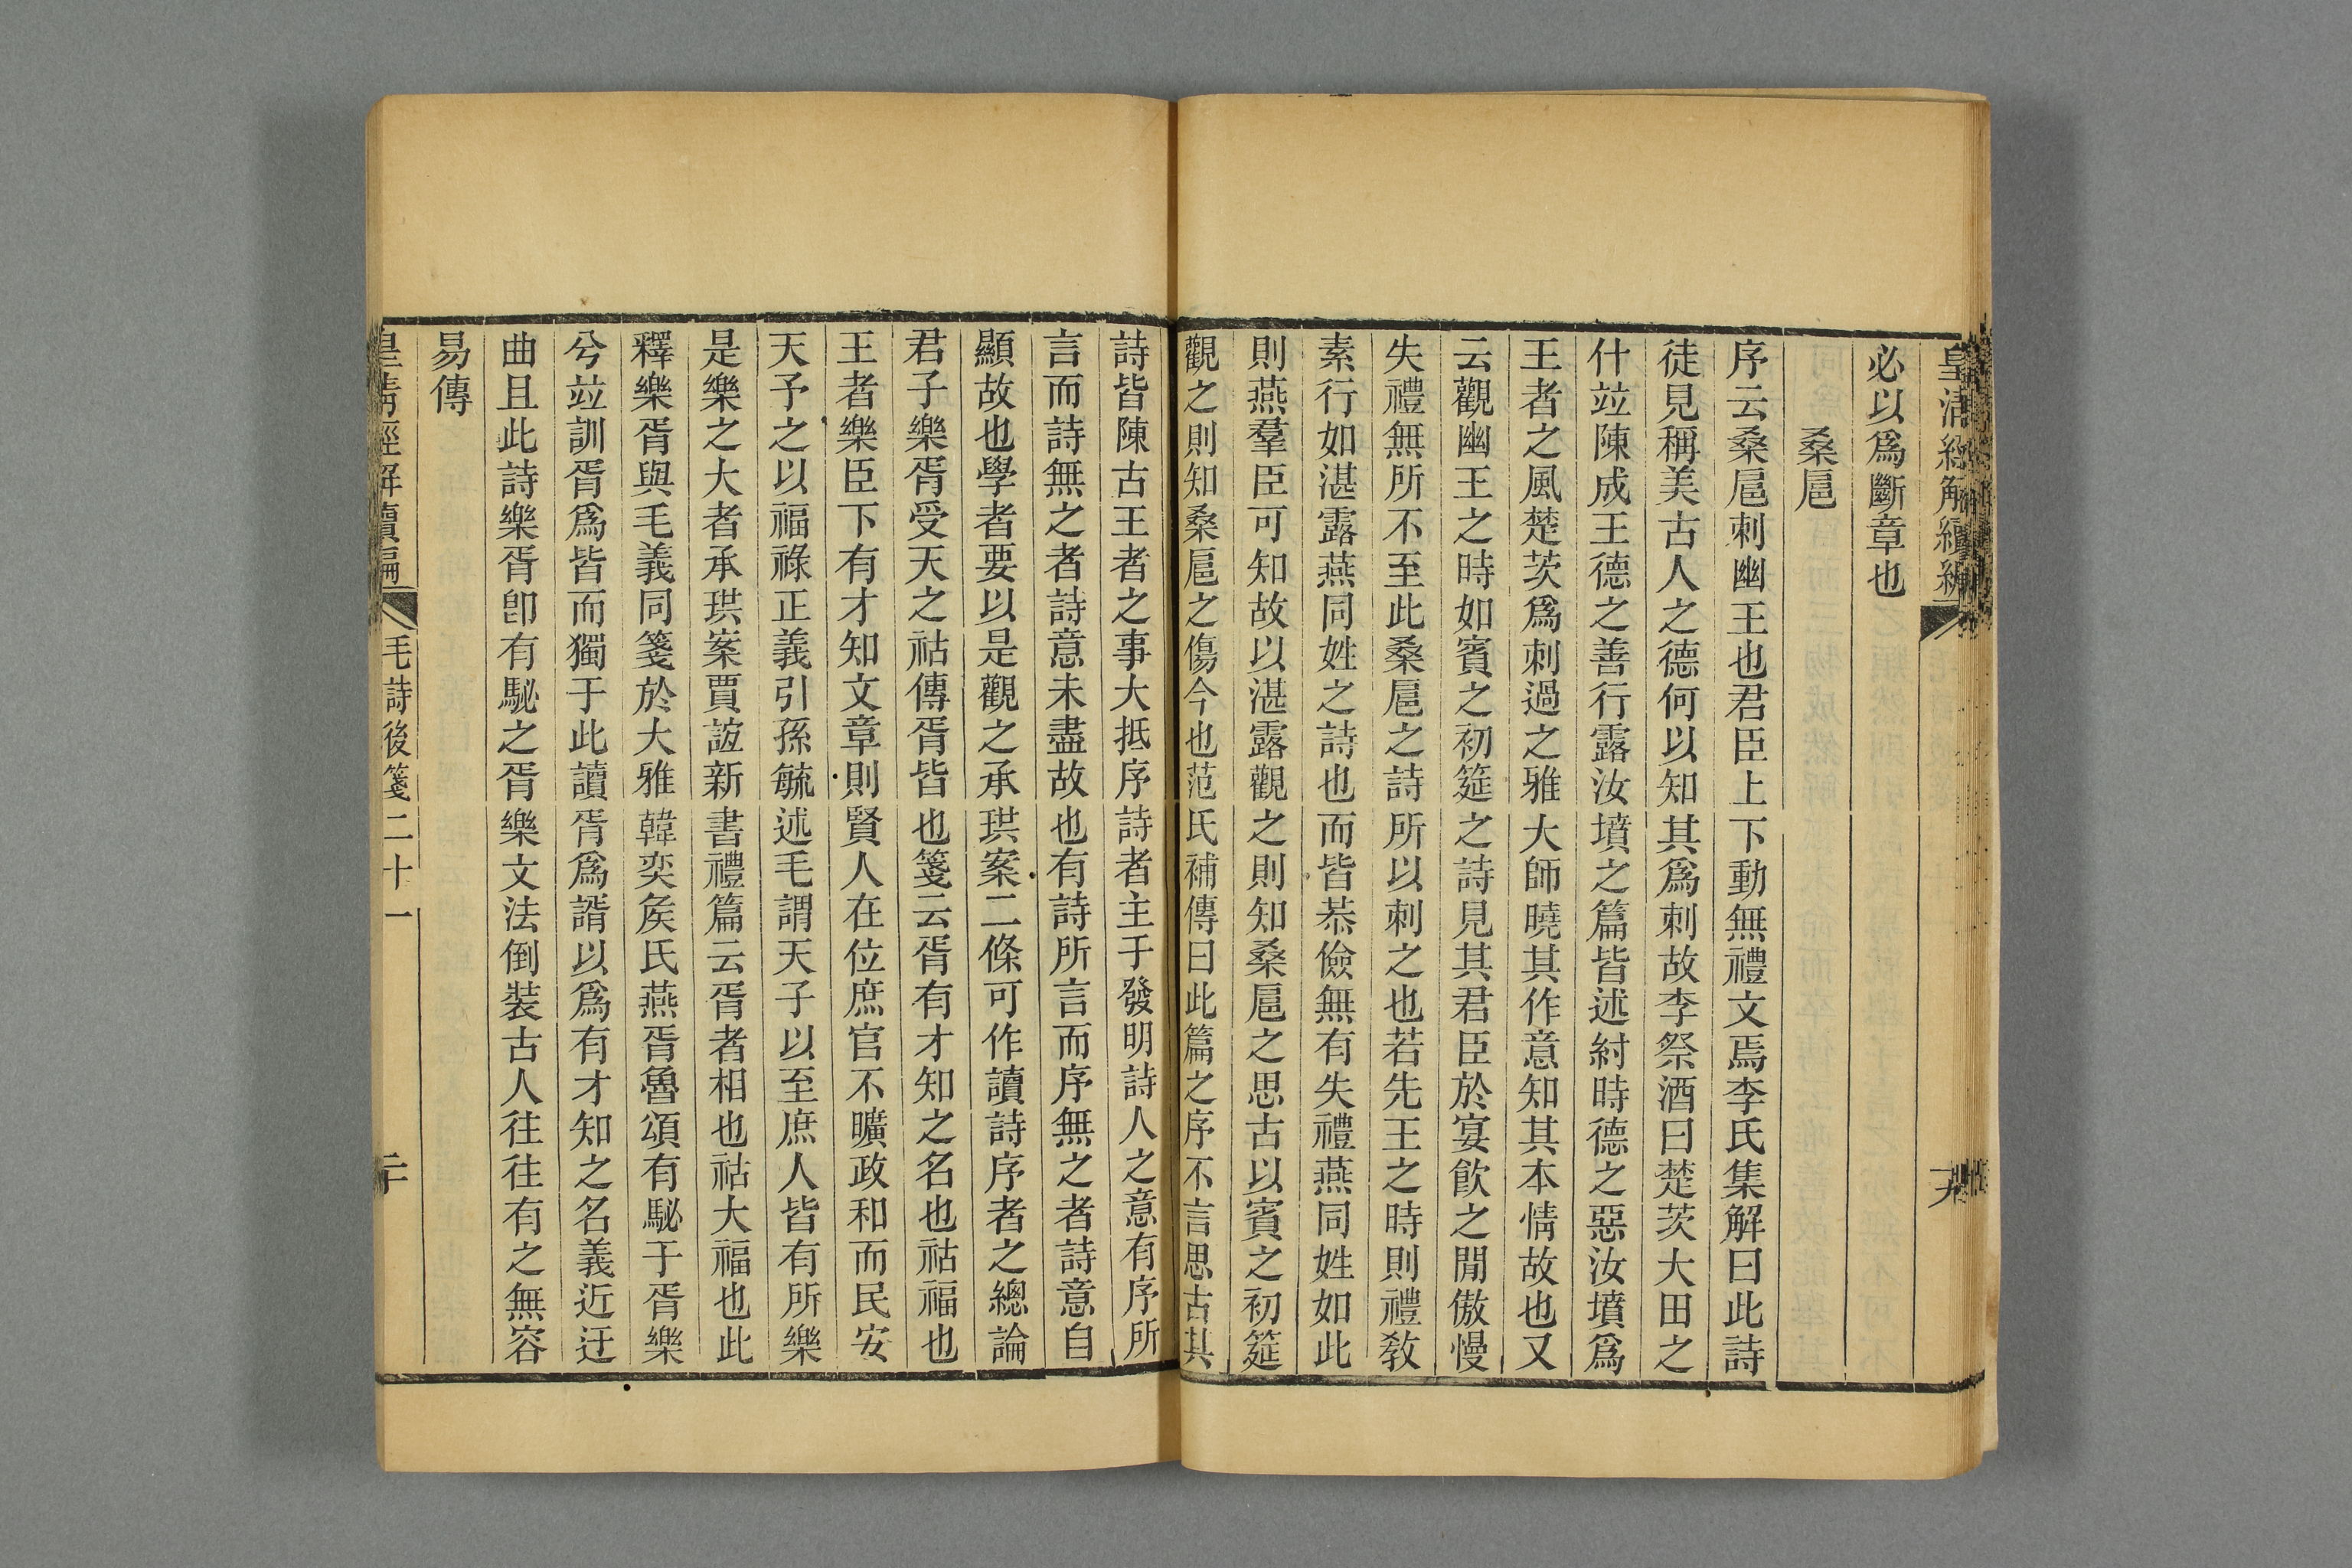 皇清經解續編
十九
必以爲斷章也
桑扈
序云桑扈刺幽王也君臣上下動無禮文焉李氏集解曰此詩
徒見稱美古人之德何以知其爲刺故李祭酒曰楚茨大田之
什竝陳成王德之善行露汝墳之篇皆述紂時德之惡汝墳爲
王者之風楚茨爲刺過之雅大師曉其作意知其本情故也又
云觀幽王之時如賓之初筵之詩見其君臣於宴飮之閒傲慢
失禮無所不至此桑扈之詩所以刺之也若先王之時則禮敎
素行如湛露燕同姓之詩也而皆恭儉無有失禮燕同姓如此
則燕羣臣可知故以湛露觀之則知桑扈之思古以賓之初筵
觀之則知桑扈之傷今也范氏補傳曰此篇之序不言思古其
詩皆陳古王者之事大抵序詩者主于發明詩人之意有序所
言而詩無之者詩意未盡故也有詩所言而序無之者詩意自
顯故也學者要以是觀之承珙案二條可作讀詩序者之總論
君子樂胥受天之祜傳胥皆也箋云胥有才知之名也祜福也
王者樂臣下有才知文章則賢人在位庶官不曠政和而民安
天予之以福祿正義引孫毓述毛謂天子以至庶人皆有所樂
是樂之大者承珙案賈誼新書禮篇云胥者相也祜大福也此
釋樂胥與毛義同箋於大雅韓奕矦氏燕胥魯頌有駜于胥樂
兮竝訓胥爲皆而獨于此讀胥爲諝以爲有才知之名義近迂
曲且此詩樂胥卽有駜之胥樂文法倒裝古人往往有之無容
易傳
皇清經解續編
毛詩後箋二十一
二十